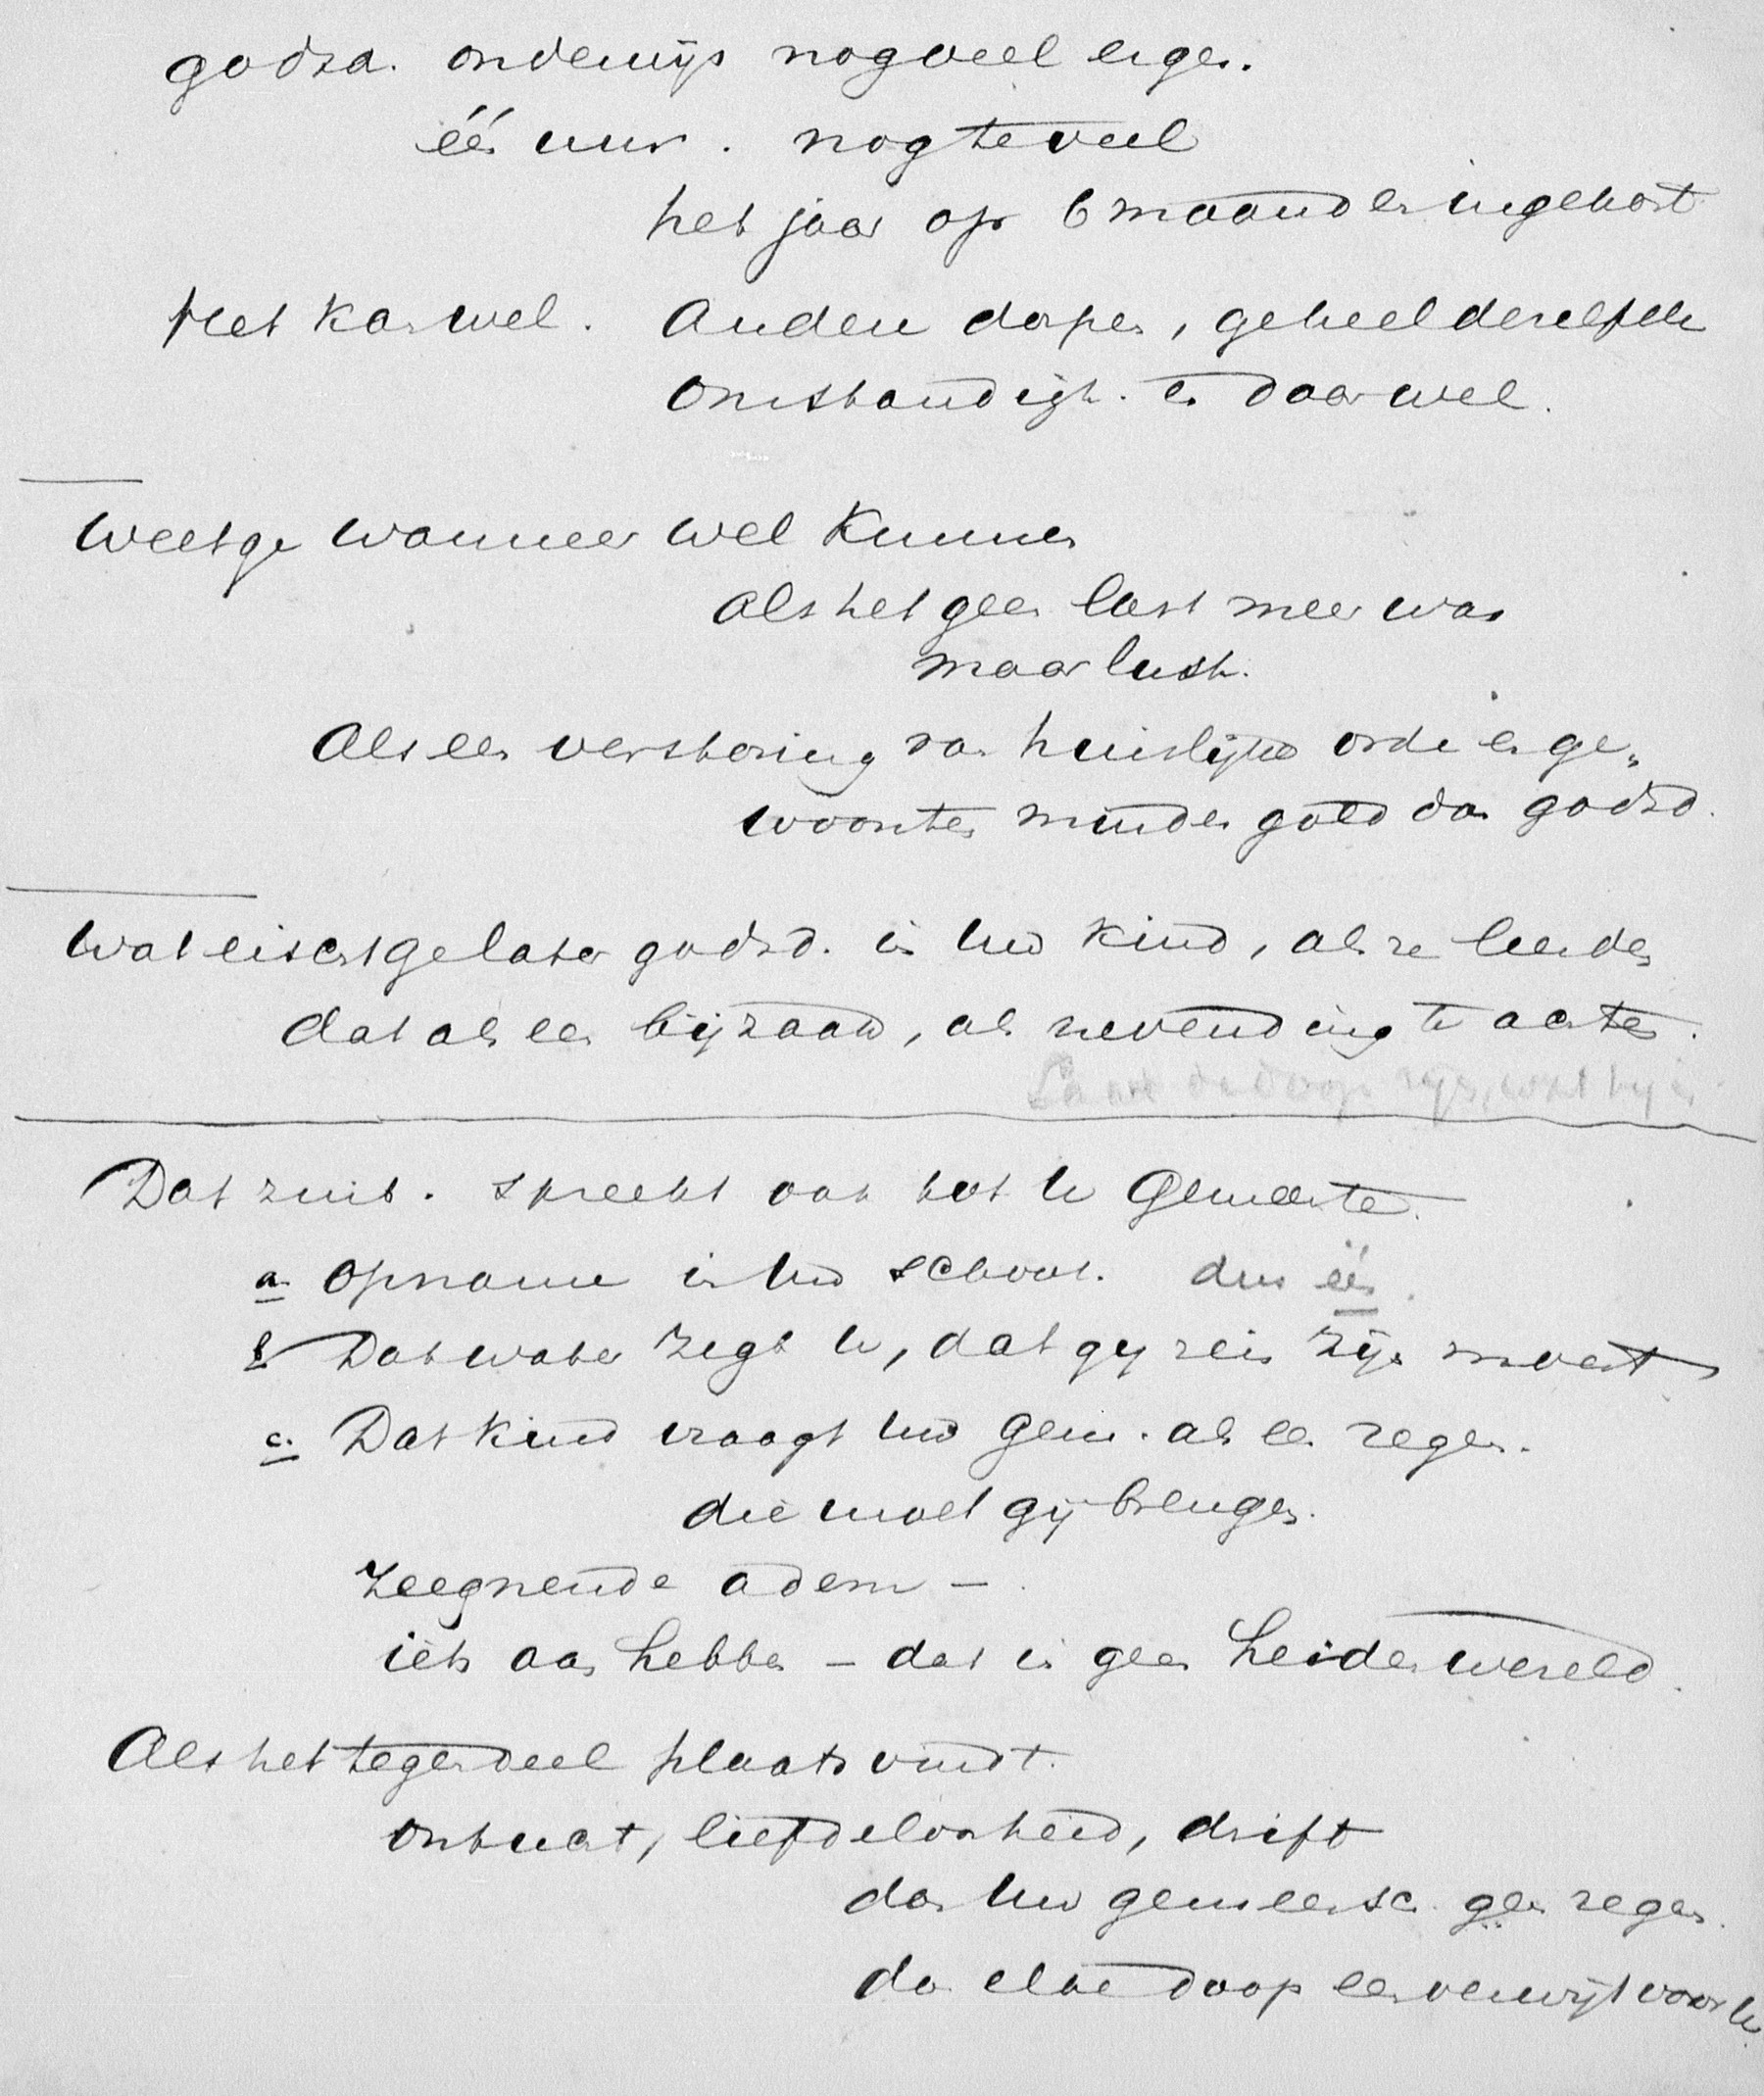 godsd. onderwijs nog veel erger.
één uur. nog te veel
het jaar op 6 maanden ingekort
Het kan wel. Andere dorpen, geheel dezelfde
omstandigh. en daar wel.
Weet ge wanneer wel kunnen
als het geen last meer was
maar lust.
Als een verstoring van huislijke orde en ge„
woonten minder gold dan godsd.
Wat eischt ge later godsd. in uw kind, als ze leerden
dat als een bijzaak, als nevending te achten.
Laat de doop zijn, wat hij is
Dat zuid. spreekt ook tot u Gemeente.
a. Opname in uw school. dus één.
b Dat water zegt u, dat gij rein zijn moest
c. Dat kind vraagt uw Gem. als een zegen.
die moet gij brengen.
Zeegnende adem –
iets aan hebben – dat is geen heidenwereld.
Als het tegendeel plaats vindt.
ontucht, liefdeloosheid, drift
dan uw gemeensch. geen zegen.
dan elke doop een verwijt voor u.